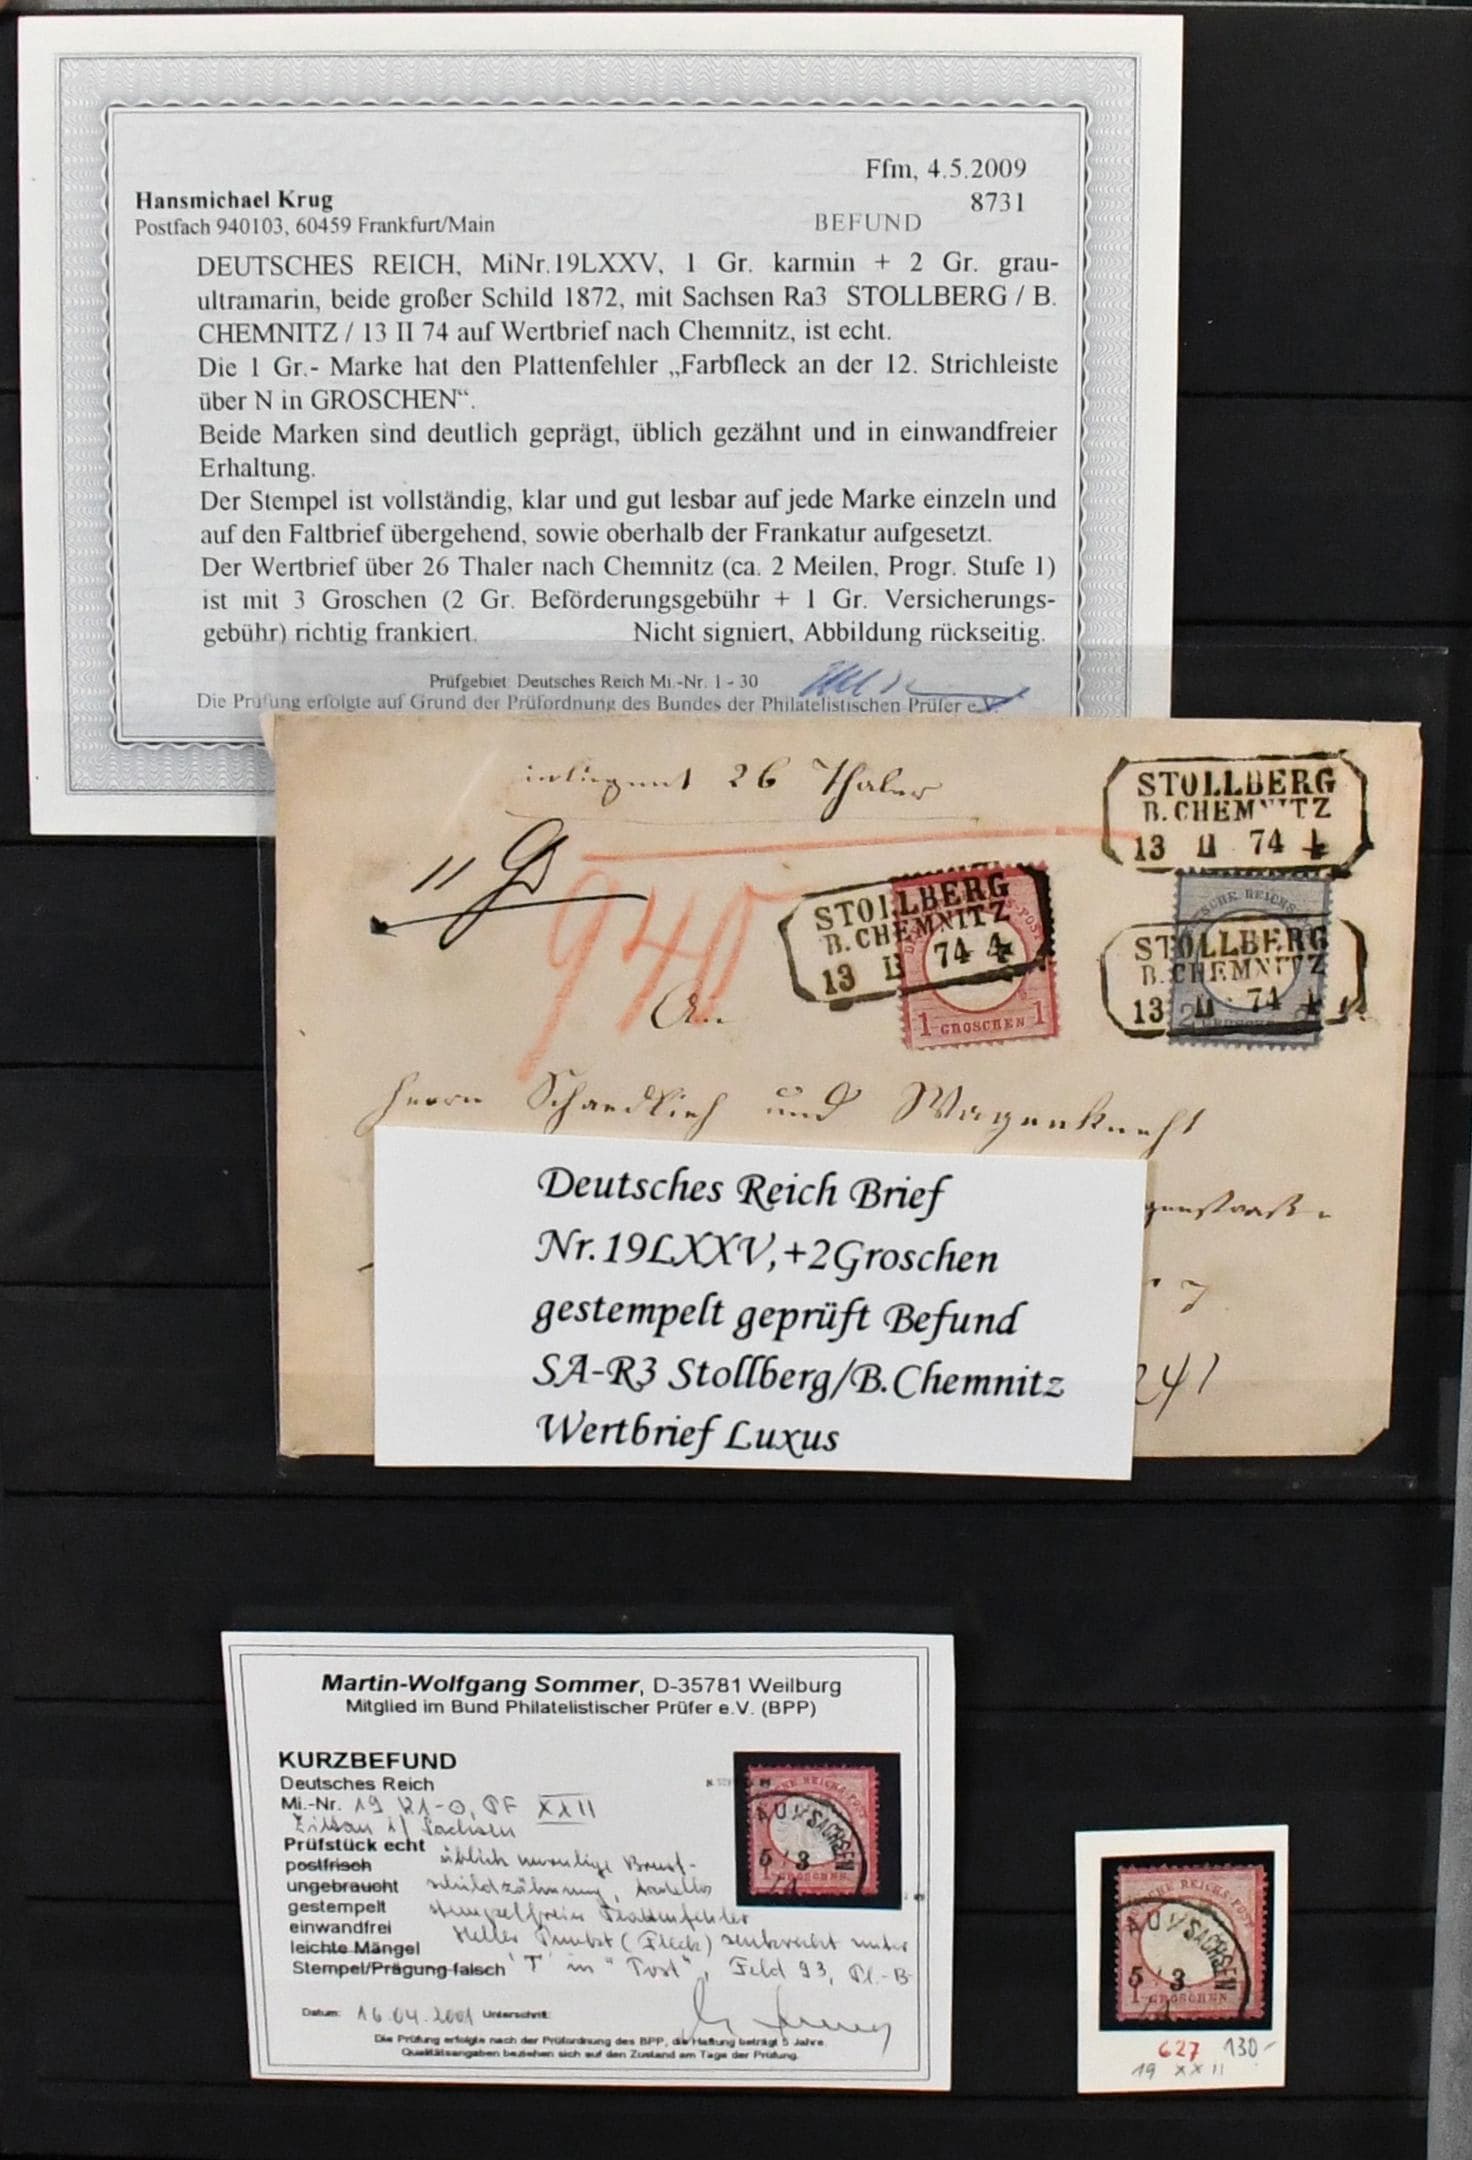 Ffm, 4.5.2009
Hansmichael Krug
8731
Postfach 940103, 60459 Frankfurt/Main
BEFUND
DEUTSCHES REICH, MiNr.19LXXV, 1 Gr. karmin + 2 Gr. grau-
ultramarin, beide großer Schild 1872, mit Sachsen Ra3 STOLLBERG / B.
CHEMNITZ / 13 II 74 auf Wertbrief nach Chemnitz, ist echt.
Die 1 Gr.- Marke hat den Plattenfehler „Farbfleck an der 12. Strichleiste
über N in GROSCHEN“.
Beide Marken sind deutlich geprägt, üblich gezähnt und in einwandfreier
Erhaltung.
Der Stempel ist vollständig, klar und gut lesbar auf jede Marke einzeln und
auf den Faltbrief übergehend, sowie oberhalb der Frankatur aufgesetzt.
Der Wertbrief über 26 Thaler nach Chemnitz (ca. 2 Meilen, Progr. Stufe 1)
ist mit 3 Groschen (2 Gr. Beförderungsgebühr + 1 Gr. Versicherungs-
gebühr) richtig frankiert. Nicht signiert, Abbildung rückseitig.
Prüfgebiet Deutsches Reich Mi.-Nr. 1 - 30
Die Prüfung erfolgte auf Grund der Prüfordnung des Bundes der Philatelistischen Prüfer e.V.
26 Thaler
STOLLBERG
B. CHEMNITZ
13 II 74 4
940
STOLLBERG
B. CHEMNITZ
13 II 74 4
1 GROSCHEN 1
STOLLBERG
B. CHEMNITZ
13 II 74 4
An
Herrn Schaedlich und Wagenknecht
241
Deutsches Reich Brief
Nr.19LXXV,+2Groschen
gestempelt geprüft Befund
SA-R3 Stollberg/B.Chemnitz
Wertbrief Luxus
Martin-Wolfgang Sommer, D-35781 Weilburg
Mitglied im Bund Philatelistischer Prüfer e.V. (BPP)
KURZBEFUND
Deutsches Reich
Mi.-Nr. 19 K1-0, PF XXII
Zittau i/ Sachsen
Prüfstück echt
postfrisch
ungebraucht
gestempelt
einwandfrei
leichte Mängel
Stempel/Prägung falsch
üblich unruhige Brust-
schildzähnung, tadellos
stempelfreier Plattenfehler
Heller Punkt (Fleck) senkrecht unter
'T' in "Post", Feld 93, Pl.-B
Datum: 16.04.2001 Unterschrift:
Die Prüfung erfolgte nach der Prüfordnung des BPP, die Haftung beträgt 5 Jahre.
Qualitätsangaben beziehen sich auf den Zustand am Tage der Prüfung.
AU i/SACHSEN
5 3
1 GROSCHEN
DEUTSCHE REICHS-POST
AU i/SACHSEN
5 3
1 GROSCHEN
627 130-
19 XXII